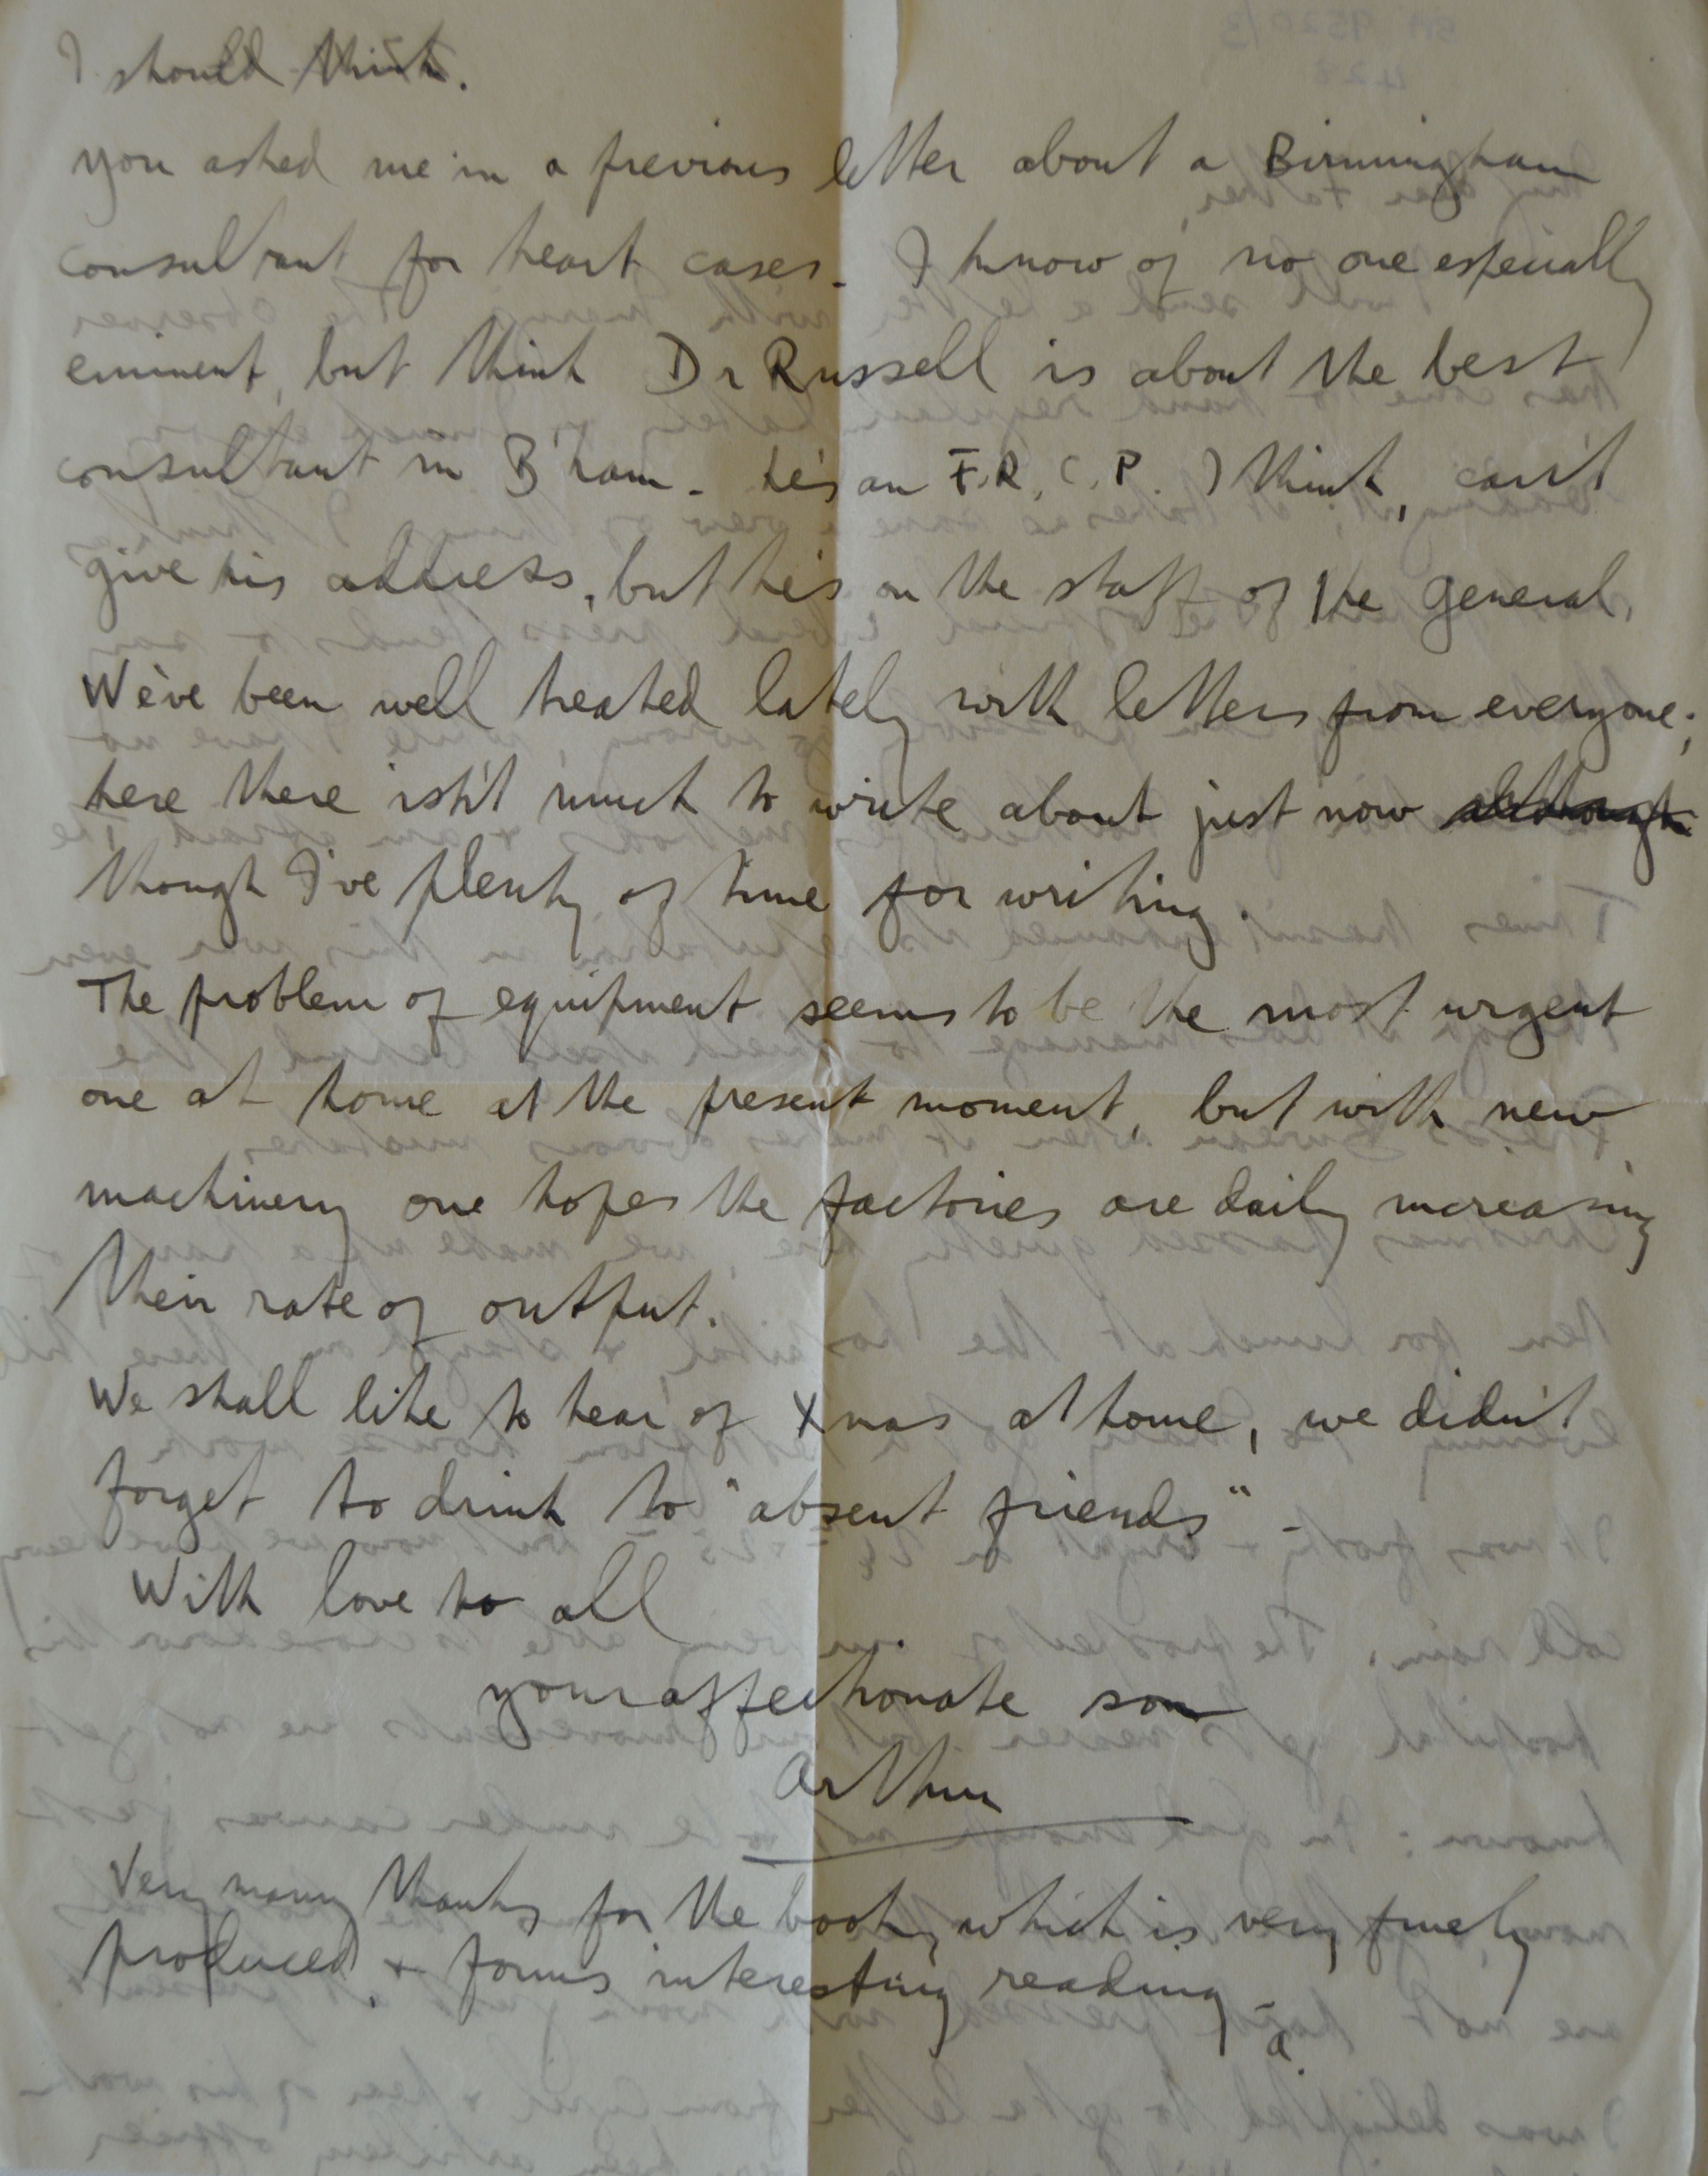 I should think.
you asked me in a previous letter about a Birmingham
consultant for heart cases. I know of no one especially
eminent, but think Dr Russell is about the best
consultant in B'ham. he's an F.R.C.P. I think, can't
give his address, but he's on the staff of the General.
We've been well treated lately with letters from everyone;
here there isn't much to write about just now although
though I've plenty of time for writing.
The problem of equipment seems to be the most urgent
one at home at the present moment, but with new
machinery one hopes the factories are daily increasing
their rate of output.
We shall like to hear of Xmas at home, we didn't
forget to drink to "absent friends" -
With love to all
your affectionate son
Arthur
Very many thanks for the book, which is very finely
produced, + forms interesting reading -
a.